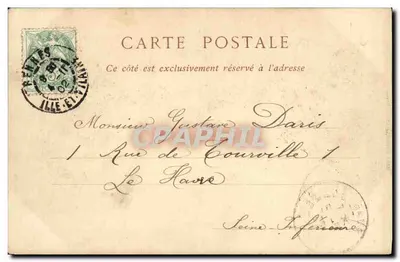 CARTE POSTALE
Ce côté est exclusivement réservé à l'adresse
RENNES
ILLE-ET-VILAINE
02
Monsieur Gustave Daris
CPARAMA
1 Rue de Tourville !
Le Havre
Seine-Inférieure